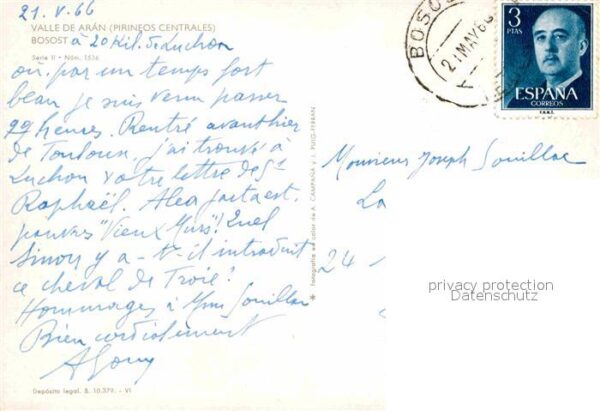 21.V.66
VALLE DE ARÁN (PIRINEOS CENTRALES)
BOSOST à 20 Kil. de Luchon
Serie II - Núm. 1536
où, par un temps fort
beau je suis venu passer
heures. Rentré avanthier
de Toulouse, j'ai trouvé à
Luchon votre lettre de St
Raphaël. Alea jacta est.
pauvres "Vieux Murs"! Quel
Sinon y a-t-il introduit
ce cheval de Troie?
Hommages à Mme Souillac
Bien cordialement
Depósito legal. B. 10.379. - VI
fotografía en color de A. CAMPAÑÁ y J. PUIG-FERRÁN
BOSOST
21 MAY 66
3
PTAS
ESPAÑA
CORREOS
F.N.M.T.
Monsieur Joseph Souillac
La
24
privacy protection
Datenschutz